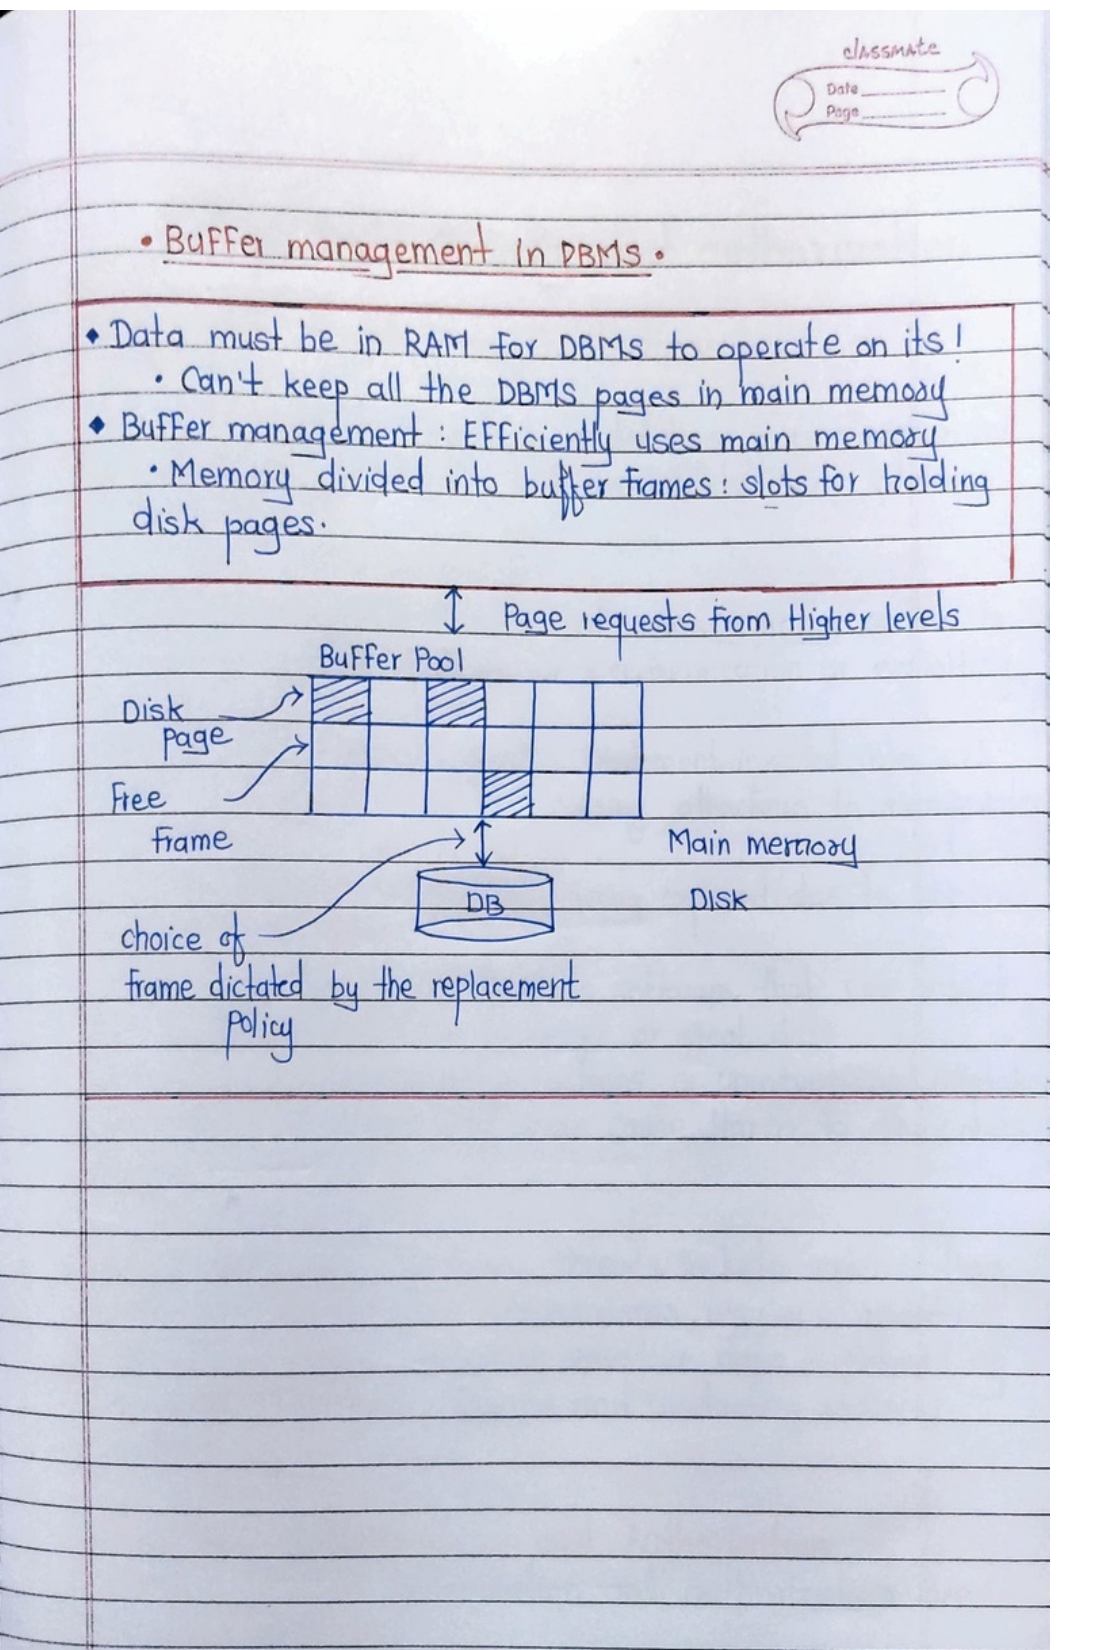 classmate
Date
Page
• Buffer management in DBMS •
◆ Data must be in RAM for DBMS to operate on its!
• Can't keep all the DBMS pages in main memory
◆ Buffer management : Efficiently uses main memory
• Memory divided into buffer frames : slots for holding
disk pages.
Page requests from Higher levels
Buffer Pool
Disk
page
Free
frame
Main memory
DB
DISK
choice of
frame dictated by the replacement
policy